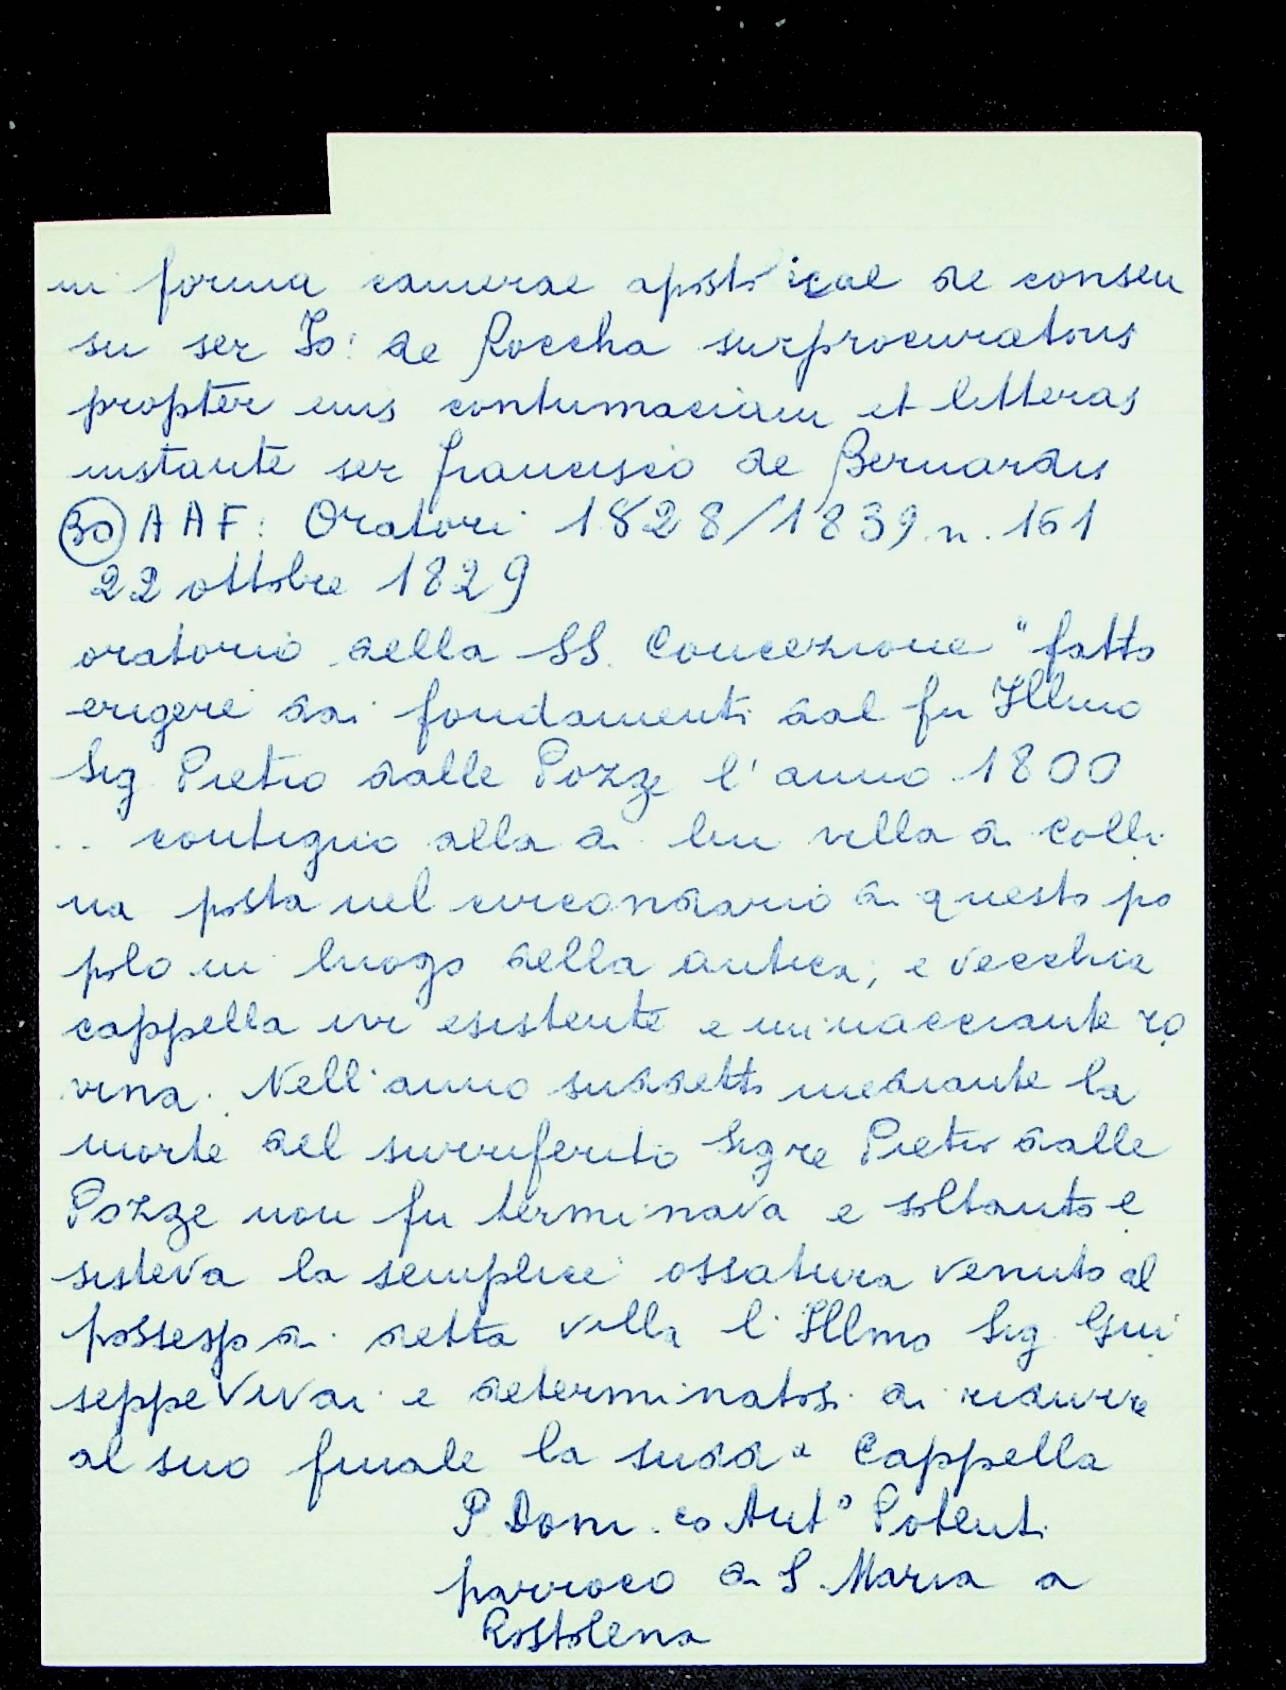 in forma camerae apostolicae de consen
su ser Io: de Roccha surprocuratoris
propter eius contumaciam et litteras
instante ser Francisco de Bernardis
30 AAF: Oratori 1828/1839 n. 161
22 ottobre 1829
oratorio della SS. Concezione "fatto
erigere dai fondamenti dal fu Illmo
Sig Pietro dalle Pozze l'anno 1800
.. contiguo alla di lui villa di Colli
na posta nel circondario di questo po
polo in luogo della antica, e vecchia
cappella ivi esistente e minacciante ro
vina. Nell'anno suddetto mediante la
morte del surriferito Sigre Pietro dalle
Pozze non fu terminava e soltanto e
sisteva la semplice ossatura venuto al
possesso di detta villa l'Illmo Sig. Giu
seppe Vivai e determinatosi di ridurre
al suo finale la sudda Cappella
P. Dom.co Anto Potenti
parroco di S. Maria a
Rostolena